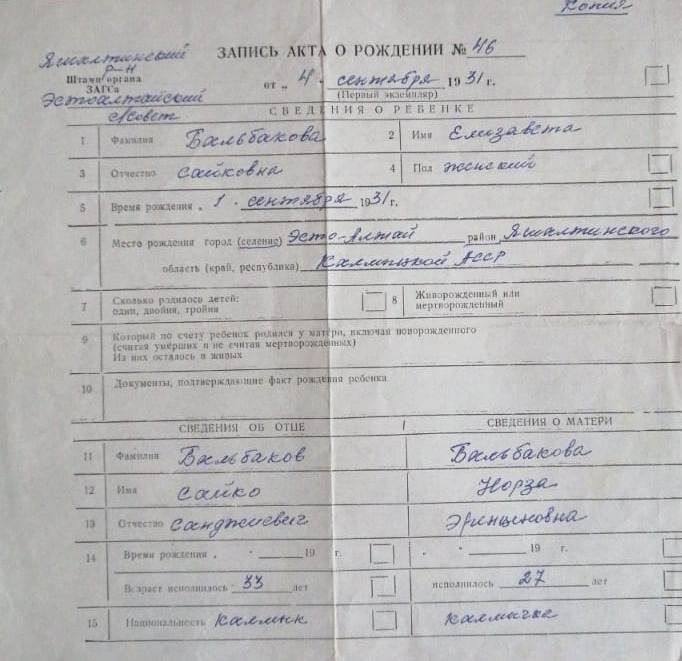 Копия
ЗАПИСЬ АКТА О РОЖДЕНИИ № 46
Яшалтинский
р-н
Штамп органа
ЗАГСа
Эстоалтайский
с/совет
от „ 4 " сентября 1931 г.
(Первый экземпляр)
СВЕДЕНИЯ О РЕБЕНКЕ
1 Фамилия Бальбакова 2 Имя Елизавета
3 Отчество Сайковна 4 Пол женский
5 Время рождения „ 1 . сентября 1931 г.
6 Место рождения город (селение) Эсто-Алтай район Яшалтинского
область (край, республика) Калмыцкой АССР
7 Сколько родилось детей: 8 Живорожденный или
один, двойня, тройня мертворожденный
9 Который по счету ребенок родился у матери, включая новорожденного
(считая умерших и не считая мертворожденных)
Из них осталось в живых
10 Документы, подтверждающие факт рождения ребенка
СВЕДЕНИЯ ОБ ОТЦЕ / СВЕДЕНИЯ О МАТЕРИ
11 Фамилия Бальбаков Бальбакова
12 Имя Сайко Норза
13 Отчество Санджиевич Эренценовна
14 Время рождения „ " 19 г. „ " 19 г.
Возраст исполнилось 33 лет исполнилось 27 лет
15 Национальность калмык калмычка